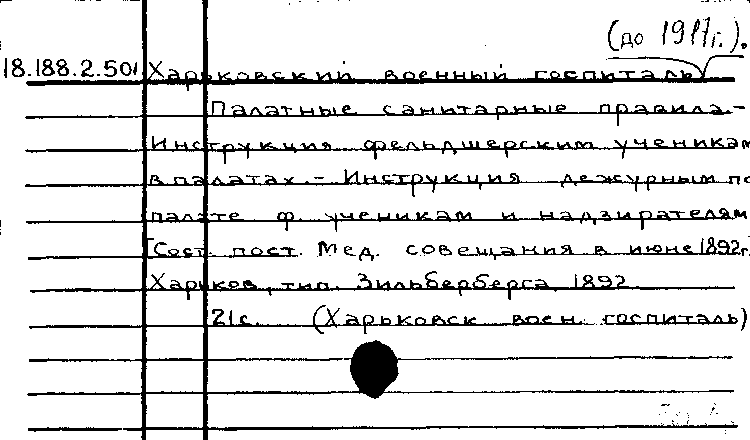 (до 1917г.).
18.188.2.501 Харьковский военный госпиталь
Палатные санитарные правила.-
Инструкция фельдшерским ученикам
в палатах.- Инструкция дежурным по
палате ф. ученикам и надзирателям
[Сост. пост. Мед. совещания в июне 1892г.
Харьков, тип. Зильберберга, 1892.
21с. (Харьковск воен. госпиталь)